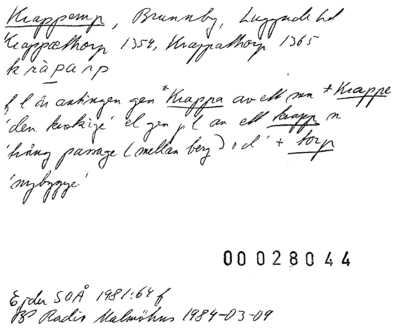 Krapperup, Brunnby, Luggude hd
Krappæthorp 1354, Krappathorp 1365
kràparp
f l är antingen gen *Krappa av ett mn *Krappe
'den krokige' el gen pl av ett krapp n
'trång passage (mellan berg) o d' + torp
'nybygge'
00028044
Ejder SOÅ 1981:64 f
BP Radio Malmöhus 1984-03-09